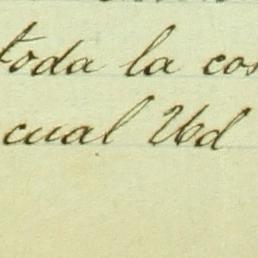 toda la cos
cual Ud